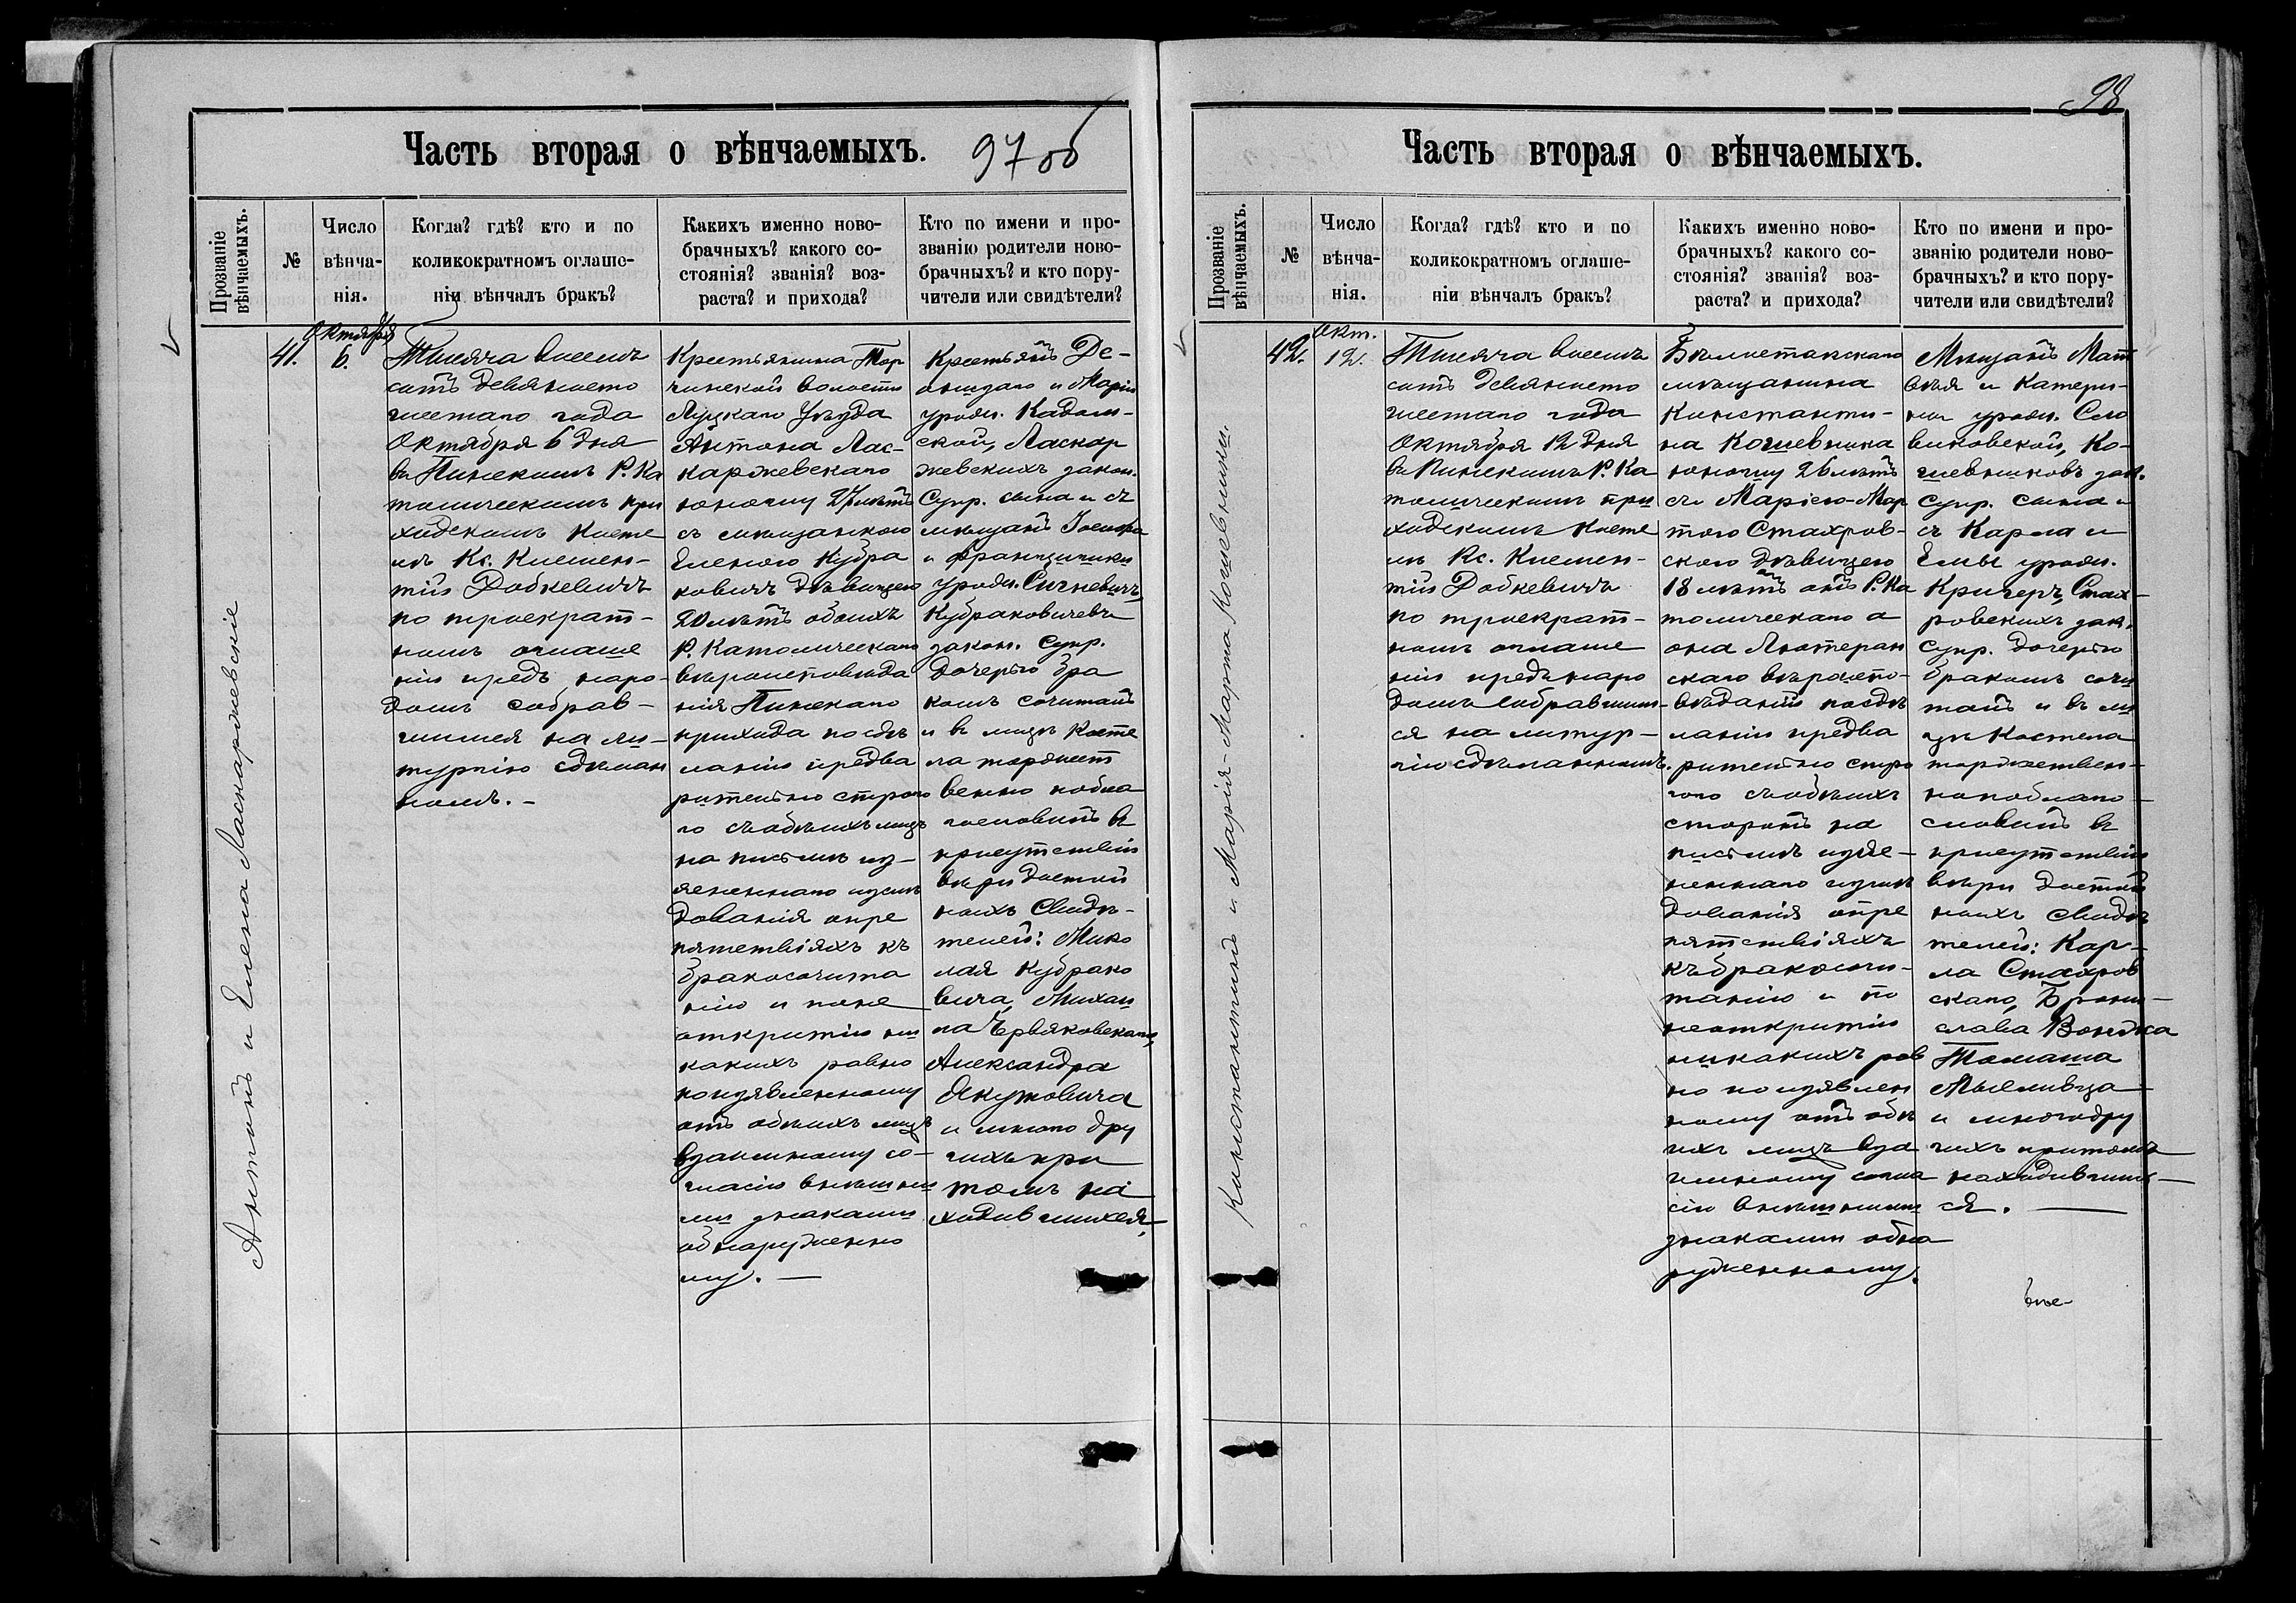 98
Часть вторая о вѣнчаемыхъ. 97 об
Прозваніе вѣнчаемыхъ.
№
Число вѣнча-нія.
Когда? гдѣ? кто и по
коликократномъ оглаше-
ніи вѣнчалъ бракъ?
Какихъ именно ново-
брачныхъ? какого со-
стоянія? званія? воз-
раста? и прихода?
Кто по имени и про-
званію родители ново-
брачныхъ? и кто пору-
чители или свидѣтели?
Антонъ и Елена Ласкаржевскіе
41.
Октября
6.
Тысяча восемь
сотъ девяносто
шестаго года
Октября 6 дня
въ Пинскомъ Р. Ка
толическомъ при
ходскомъ косте
лѣ Кс. Клемен-
тій Добкевичъ
по троекрат-
номъ оглаше
ніи предъ наро-
домъ собрав-
шимся на ли-
тургію сдѣлан
номъ. -
Крестьянина Тор
чинской волости
Луцкаго уѣзда
Антона Лас-
каржевскаго
юношу 27 лѣтъ
съ мѣщанкою
Еленою Кубра
ковичъ дѣвицею
20 лѣтъ обоихъ
Р. Католическаго
вѣроисповѣда
нія Пинскаго
прихода по сдѣ
ланіи предва
рительно строго
го съ обѣихъ лицъ
на письмѣ из-
ясненнаго изслѣ
дованія о пре
пятствіяхъ къ
бракосочета
нію и по не
открытію ни
какихъ равно
по изявленному
отъ обѣихъ лицъ
взаимному со-
гласію внѣшни
ми знаками
обнаруженно
му. —
Крестьянъ Де-
онизаго и Маріи
урожд. Кадлы-
ской, Ласкар
жевскихъ закон.
Супр. сына и съ
мѣщанъ Іосифа
и Францишки
урожд. Сичневичъ,
Кубраковичевъ
закон. Супр.
дочерью бра
комъ сочеталъ
и въ лицѣ косте
ла торжест
венно побла
гословилъ въ
присутствіи
вѣри достой
ныхъ Свидѣ-
телей: Мико
лая Кубрако
вича, Михаи
ла Червяковскаго,
Александра
Якутовича
и много дру
гихъ при
томъ на
ходившихся,
Часть вторая о вѣнчаемыхъ.
Прозваніе вѣнчаемыхъ.
№
Число вѣнча-нія.
Когда? гдѣ? кто и по
коликократномъ оглаше-
ніи вѣнчалъ бракъ?
Какихъ именно ново-
брачныхъ? какого со-
стоянія? званія? воз-
раста? и прихода?
Кто по имени и про-
званію родители ново-
брачныхъ? и кто пору-
чители или свидѣтели?
Константинъ и Марія-Марта Кошевники.
42.
Окт.
12.
Тысяча восемь
сотъ девяносто
шестаго года
Октября 12 дня
въ Пинскомъ Р. Ка
толическомъ при
ходскомъ косте
лѣ Кс. Клемен-
тій Добкевичъ
по троекрат-
номъ оглаше
ніи предъ наро
домъ собравшим-
ся на литур-
гію сдѣланномъ.
Бѣлостокскаго
мѣщанина
Константи-
на Кошевника
юношу 26 лѣтъ
съ Маріею-Мар
тою Стахров-
скою дѣвицею
18 лѣтъ онъ Р. Ка
толическаго а
она Лютеран
скаго вѣроиспо-
вѣданій по сдѣ
ланіи предва
рительно стро
гаго съ обѣихъ
сторонъ на
письмѣ изъяс-
неннаго изслѣ
дованія о пре
пятствіяхъ
къ бракосоче-
танію и по
неоткрытію
никакихъ рав
но по изявлен
ному отъ обѣ
ихъ лицъ вза
имному согла
сію внѣшними
знаками обна
руженному.
Мѣщанъ Мат
вѣя и Катери-
ны урожд. Сло
виковской, Ко-
шевниковъ зак.
Супр. сына и
съ Карла и
Елы урожд.
Кригеръ, Стах-
ровскихъ зак.
Супр. дочерью
бракомъ соче
талъ и въ ли
цѣ Костела
торжествен-
но поблаго-
словилъ въ
присутствіи
вѣри достой
ныхъ свидѣ
телей: Кар-
ла Стахров
скаго, Брони-
слава Вондка
Томаша
Мысливца
и много дру
гихъ притомъ
находивших-
ся. —